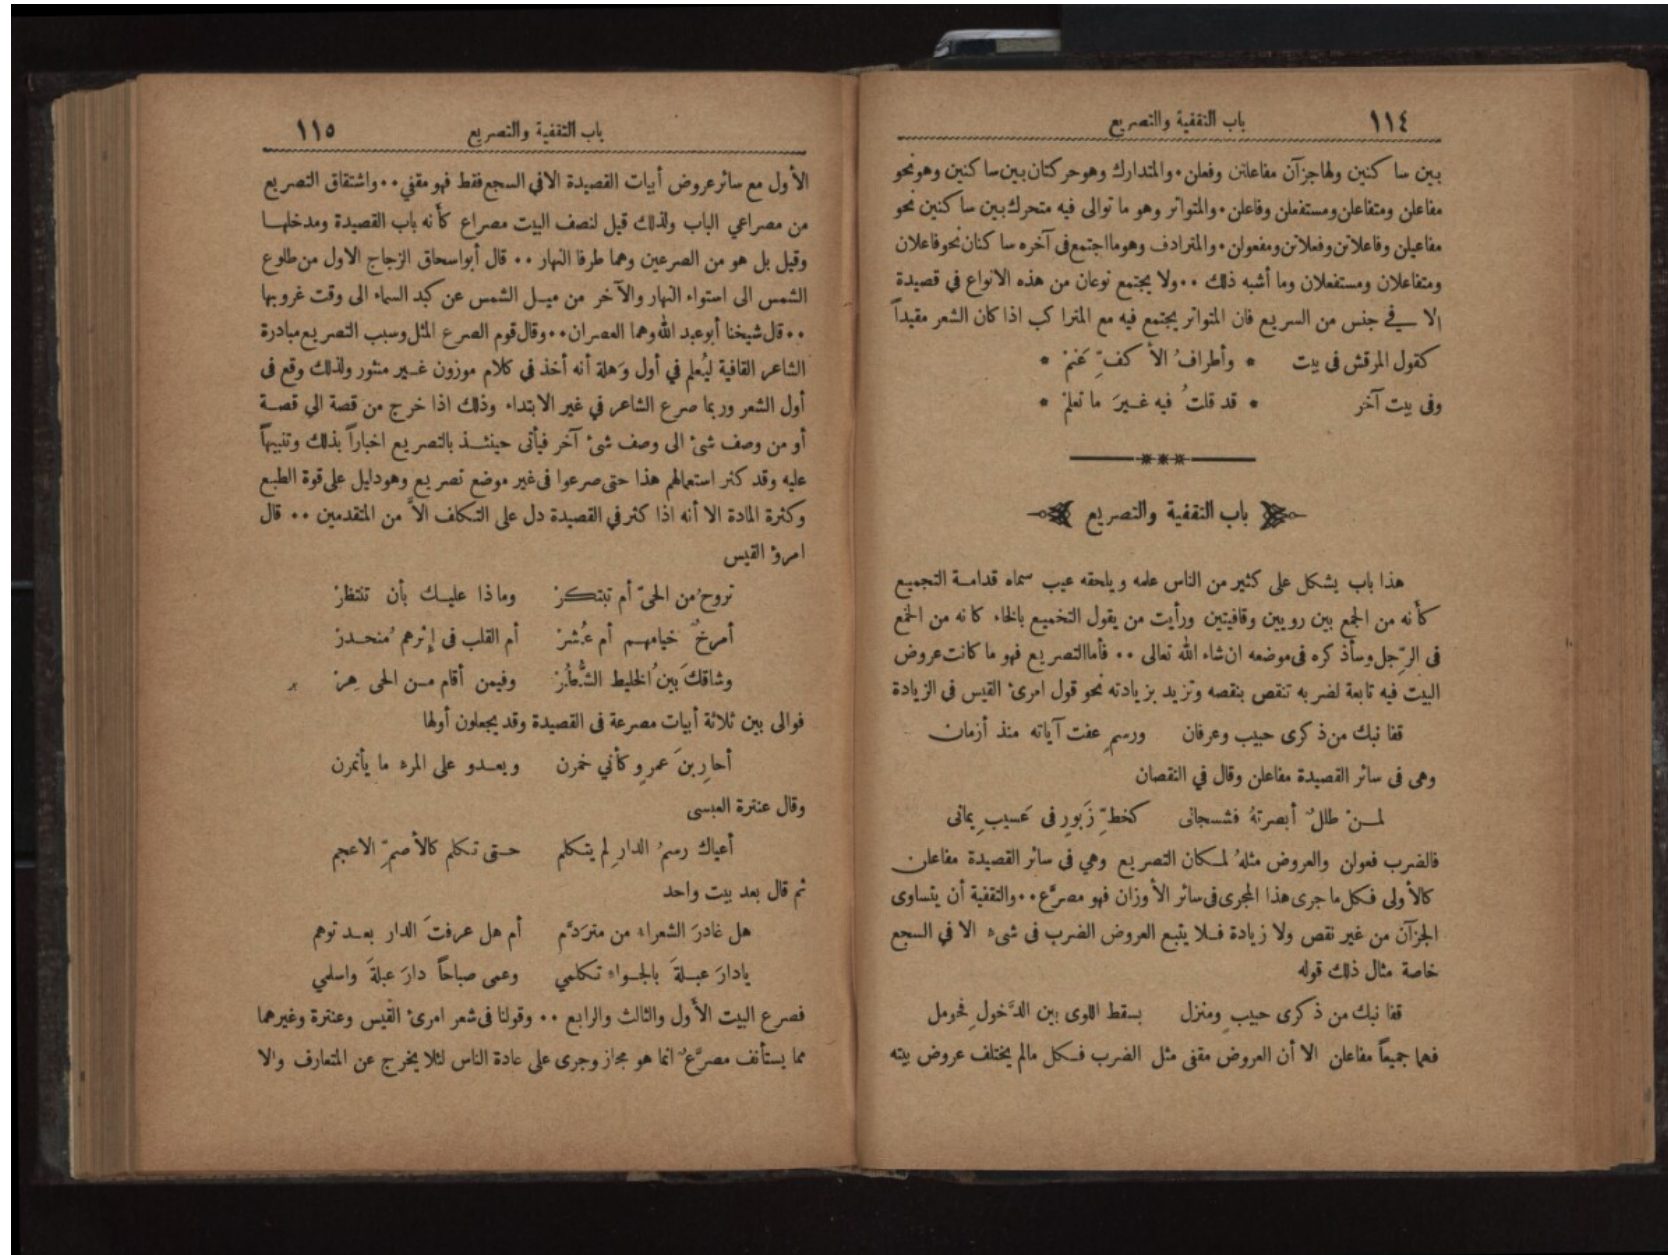 ١١٤ باب التقفية والتصريع
بين ساكنين ولها جزآن مفاعلتن وفعلن ٠ والمتدارك وهو حركتان بين ساكنين وهو نحو
مفاعلن ومتفاعلن ومستفعلن وفاعلن ٠ والمتواتر وهو ما توالى فيه متحرك بين ساكنين نحو
مفاعيلن وفاعلاتن وفعلاتن ومفعولن ٠ والمترادف وهو ما اجتمع فى آخره ساكنان نحو فاعلان
ومتفاعلان ومستفعلان وما أشبه ذلك ٠٠ ولا يجتمع نوعان من هذه الانواع في قصيدة
إلا في جنس من السريع فان المتواتر يجتمع فيه مع المتراكب اذا كان الشعر مقيداً
كقول المرقش فى بيت * وأطرافُ الأكفِّ عَنمْ *
وفى بيت آخر * قد قلتُ فيه غيرَ ما تعلمْ *
باب التقفية والتصريع
هذا باب يشكل على كثير من الناس علمه ويلحقه عيب سماه قدامة التجميع
كأنه من الجمع بين رويين وقافيتين ورأيت من يقول التخميع بالخاء كانه من الخمع
فى الرِّجل وسأذكره فى موضعه ان شاء الله تعالى ٠٠ فأما التصريع فهو ما كانت عروض
البيت فيه تابعة لضربه تنقص بنقصه وتزيد بزيادته نحو قول امرئ القيس فى الزيادة
قفا نبك من ذكرى حبيب وعرفان ورسمٍ عفت آياته منذ أزمان
وهى فى سائر القصيدة مفاعلن وقال في النقصان
لمنْ طللٌ أبصرتهُ فشجانى كخطِّ زَبورٍ فى عَسيبِ يمانى
فالضرب فعولن والعروض مثلهُ لمكان التصريع وهي فى سائر القصيدة مفاعلن
كالأولى فكل ما جرى هذا المجرى فى سائر الأوزان فهو مصرَّع ٠٠ والتقفية أن يتساوى
الجزآن من غير نقص ولا زيادة فلا يتبع العروض الضرب فى شىء الا في السجع
خاصة مثال ذلك قوله
قفا نبك من ذكرى حبيبٍ ومنزل بسقط اللوى بين الدَّخولِ فحومل
فهما جميعاً مفاعلن الا أن العروض مقفى مثل الضرب فكل مالم يختلف عروض بيته
باب التقفية والتصريع ١١٥
الأول مع سائر عروض أبيات القصيدة الا في السجع فقط فهو مقفي ٠٠ واشتقاق التصريع
من مصراعي الباب ولذلك قيل لنصف البيت مصراع كأنه باب القصيدة ومدخلها
وقيل بل هو من الصرعين وهما طرفا النهار ٠٠ قال أبواسحاق الزجاج الاول من طلوع
الشمس الى استواء النهار والآخر من ميل الشمس عن كبد السماء الى وقت غروبها
٠٠ قال شيخنا أبو عبد الله وهما العصران ٠٠ وقال قوم الصرع المثل وسبب التصريع مبادرة
الشاعر القافية ليُعلم في أول وَهلة أنه أخذ فى كلام موزون غير منثور ولذلك وقع فى
أول الشعر وربما صرع الشاعر في غير الابتداء وذلك اذا خرج من قصة الي قصة
أو من وصف شئ الى وصف شئ آخر فيأتى حينئذ بالتصريع اخباراً بذلك وتنبيهاً
عليه وقد كثر استعمالهم هذا حتى صرعوا فى غير موضع تصريع وهو دليل على قوة الطبع
وكثرة المادة الا أنه اذا كثر في القصيدة دل على التكلف الاَّ من المتقدمين ٠٠ قال
امرؤ القيس
تروحُ من الحىّ أم تبتكرْ وماذا عليك بأن تنتظرْ
أمرخٌ خيامهم أم عُشرْ أم القلب فى إثرهم مُنحدرْ
وشاقكَ بَينُ الخليط الشُّطُرْ وفيمن أقام من الحى هِرْ
فوالى بين ثلاثة أبيات مصرعة فى القصيدة وقد يجعلون أولها
أحارِ بنَ عمرٍو كأني خمرن ويعدو على المرء ما يأتمرن
وقال عنترة العبسى
أعياك رسمُ الدارِ لم يتكلم حتى تكلم كالأصمِّ الاعجم
ثم قال بعد بيت واحد
هل غادرَ الشعراء من متردَّم أم هل عرفتَ الدار بعد توهم
يادارَ عبلةَ بالجواءِ تكلمي وعمى صباحاً دارَ عبلةَ واسلمي
فصرع البيت الأول والثالث والرابع ٠٠ وقولنا فى شعر امرئ القيس وعنترة وغيرهما
مما يستأنف مصرَّعٌ انما هو مجاز وجرى على عادة الناس لئلا يخرج عن المتعارف والا